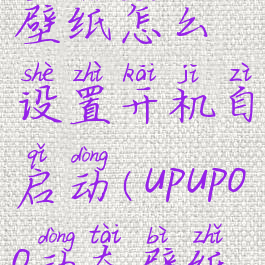 壁纸怎么
shè zhì kāi jī zì
设置开机自
qǐ dòng
启动(upupo
dòng tài bì zhǐ
o动态壁纸